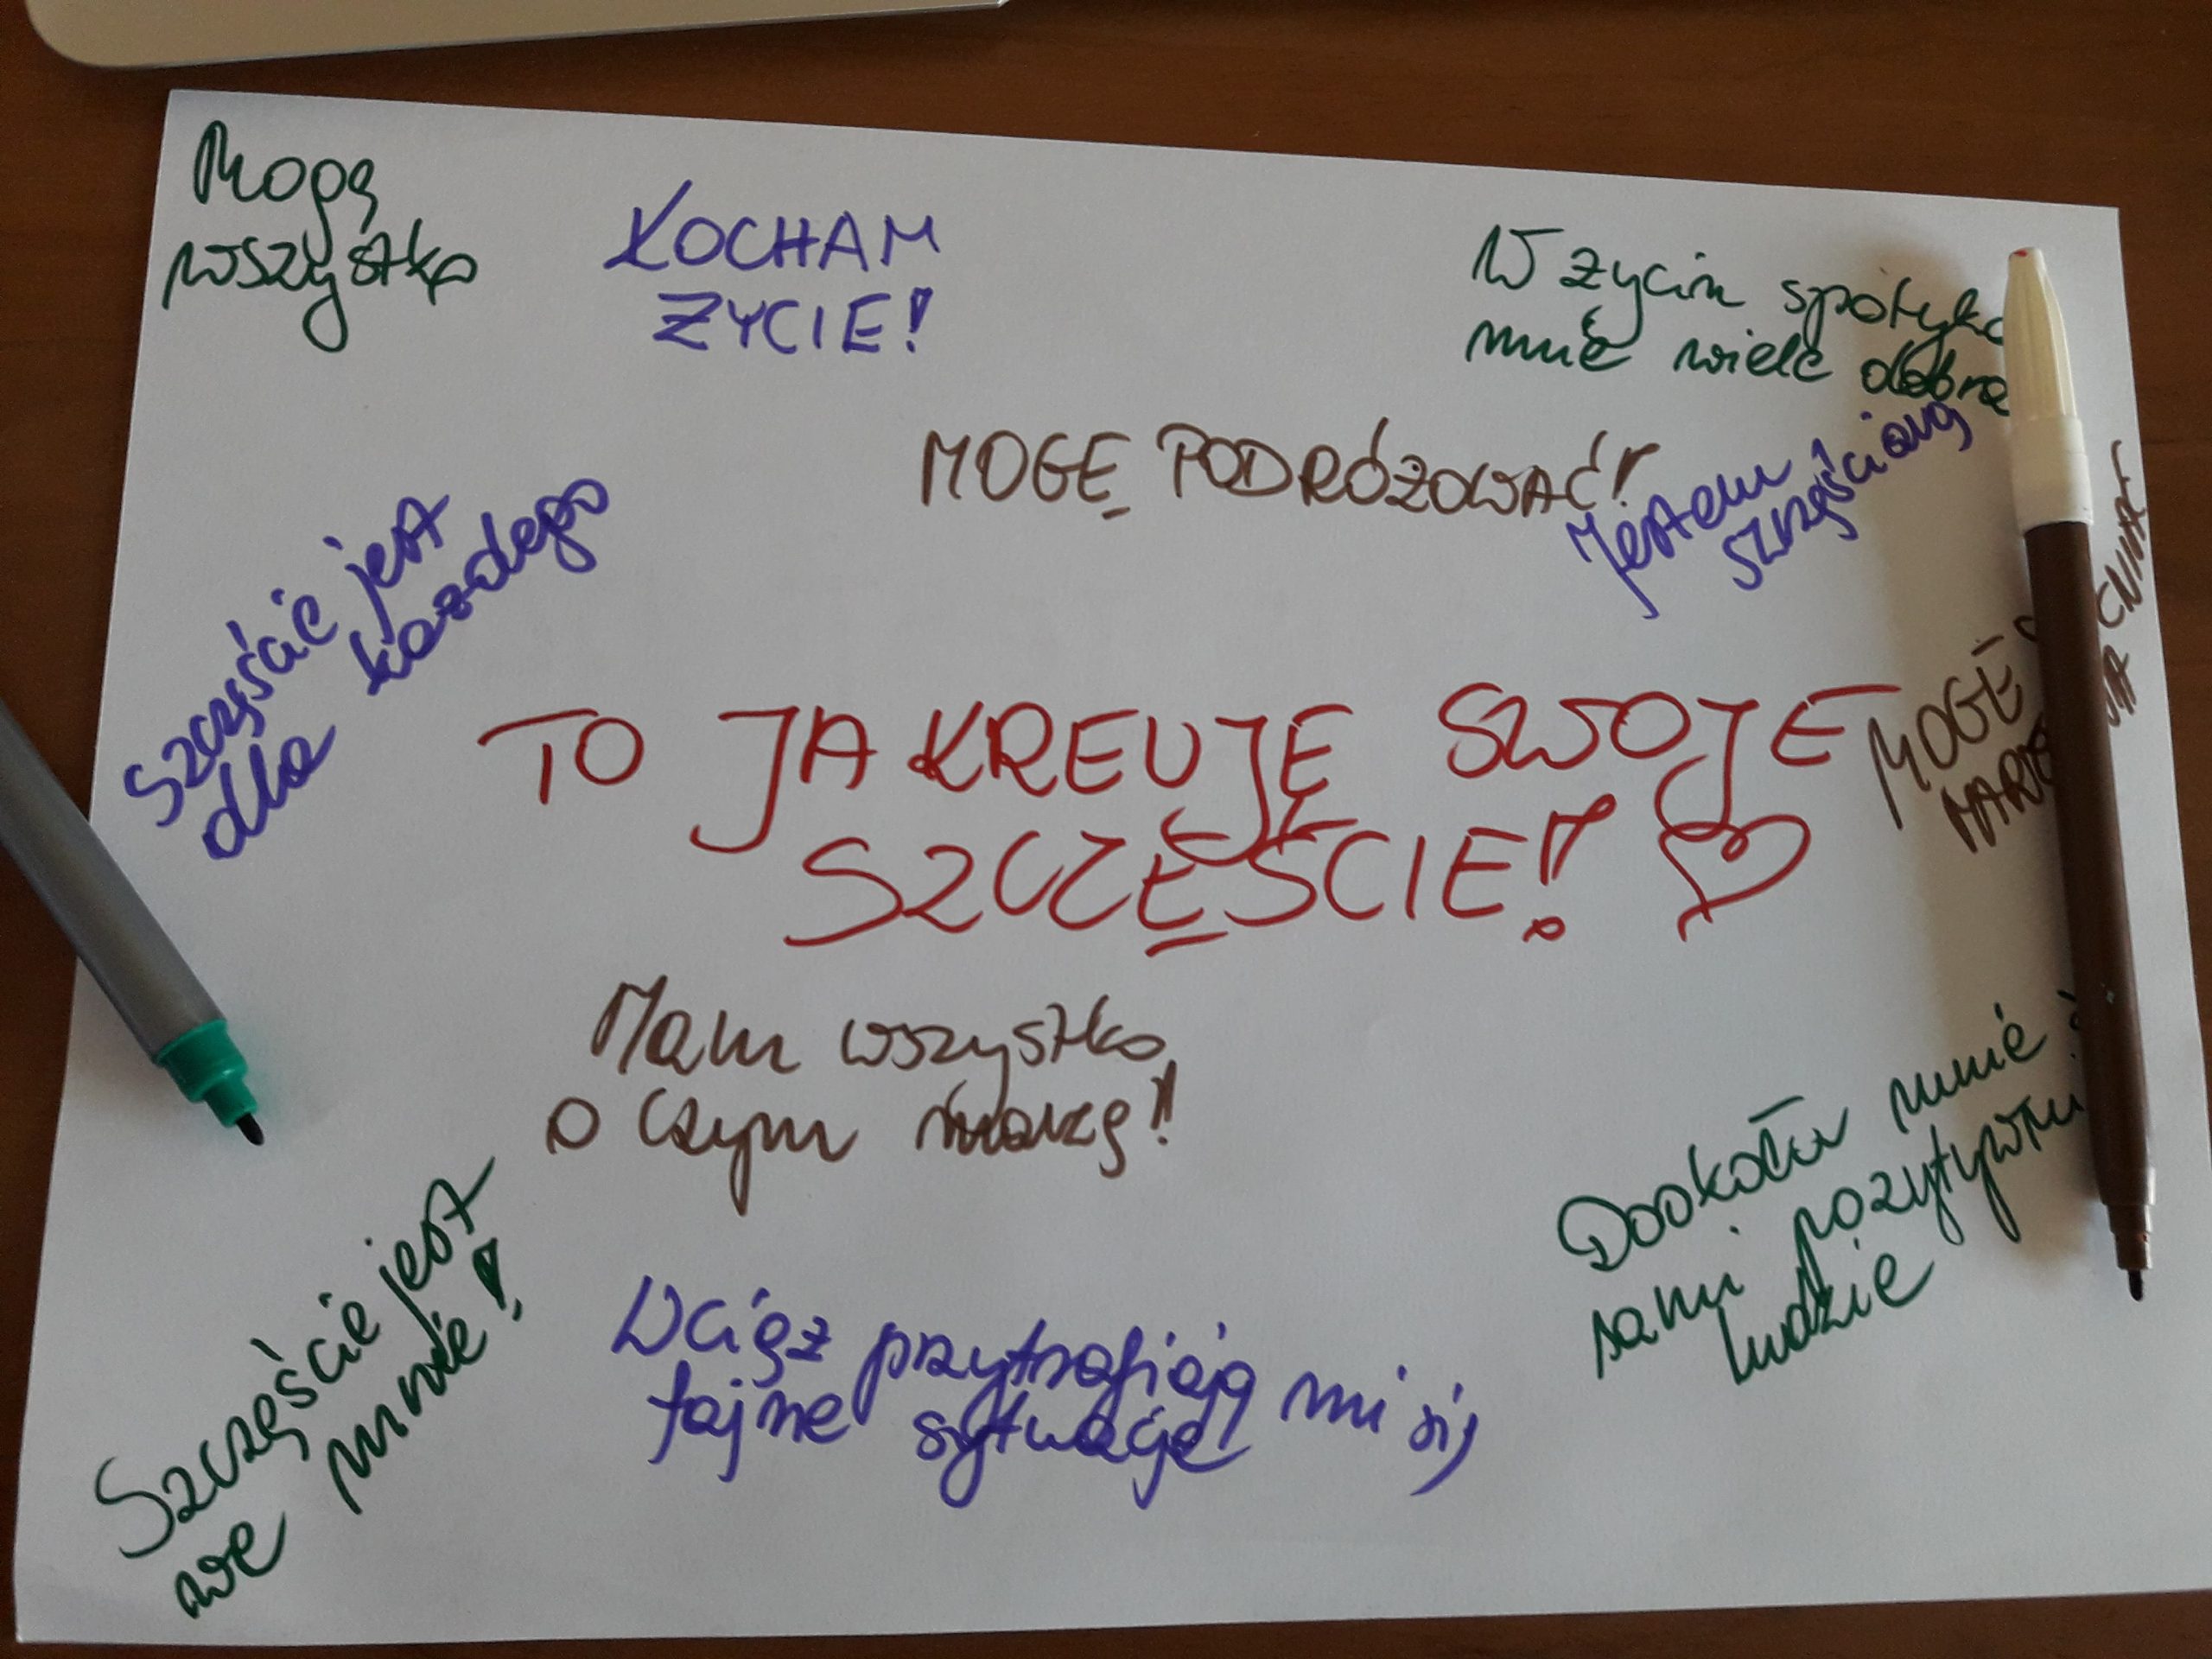 Mogę
wszystko
KOCHAM
ŻYCIE!
W życiu spotyka
mnie wiele dobra
MOGĘ PODRÓŻOWAĆ!
Jestem
szczęściarą
Szczęście jest
dla każdego
TO JA KREUJĘ SWOJE
SZCZĘŚCIE!
MOGĘ
Mam wszystko
o czym marzę!
Dookoła mnie
sami pozytywni
ludzie
Szczęście jest
we mnie!
Wciąż przytrafiają mi się
fajne sytuacje